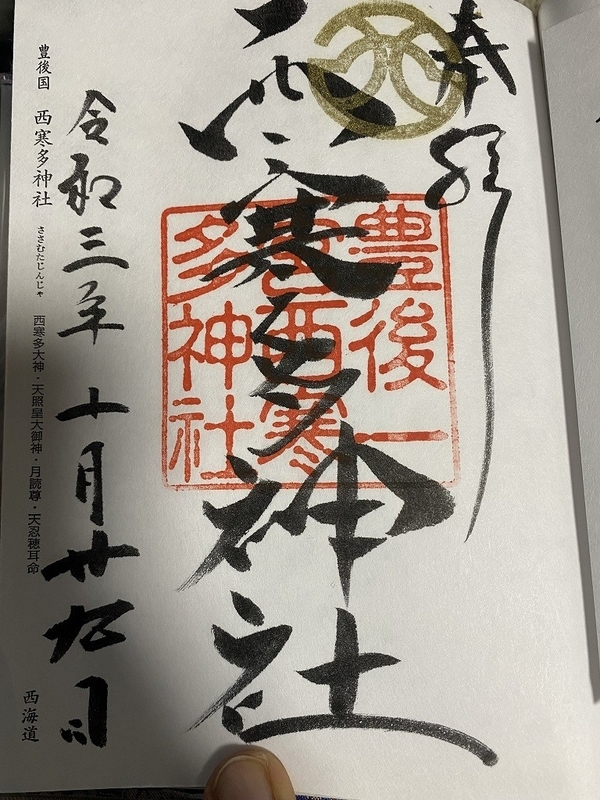 奉拝
西寒多神社
豊後一
宮西寒
多神社
令和三年十月廿九日
豊後国 西寒多神社 ささむたじんじゃ 西寒多大神・天照皇大御神・月読尊・天忍穂耳命 西海道